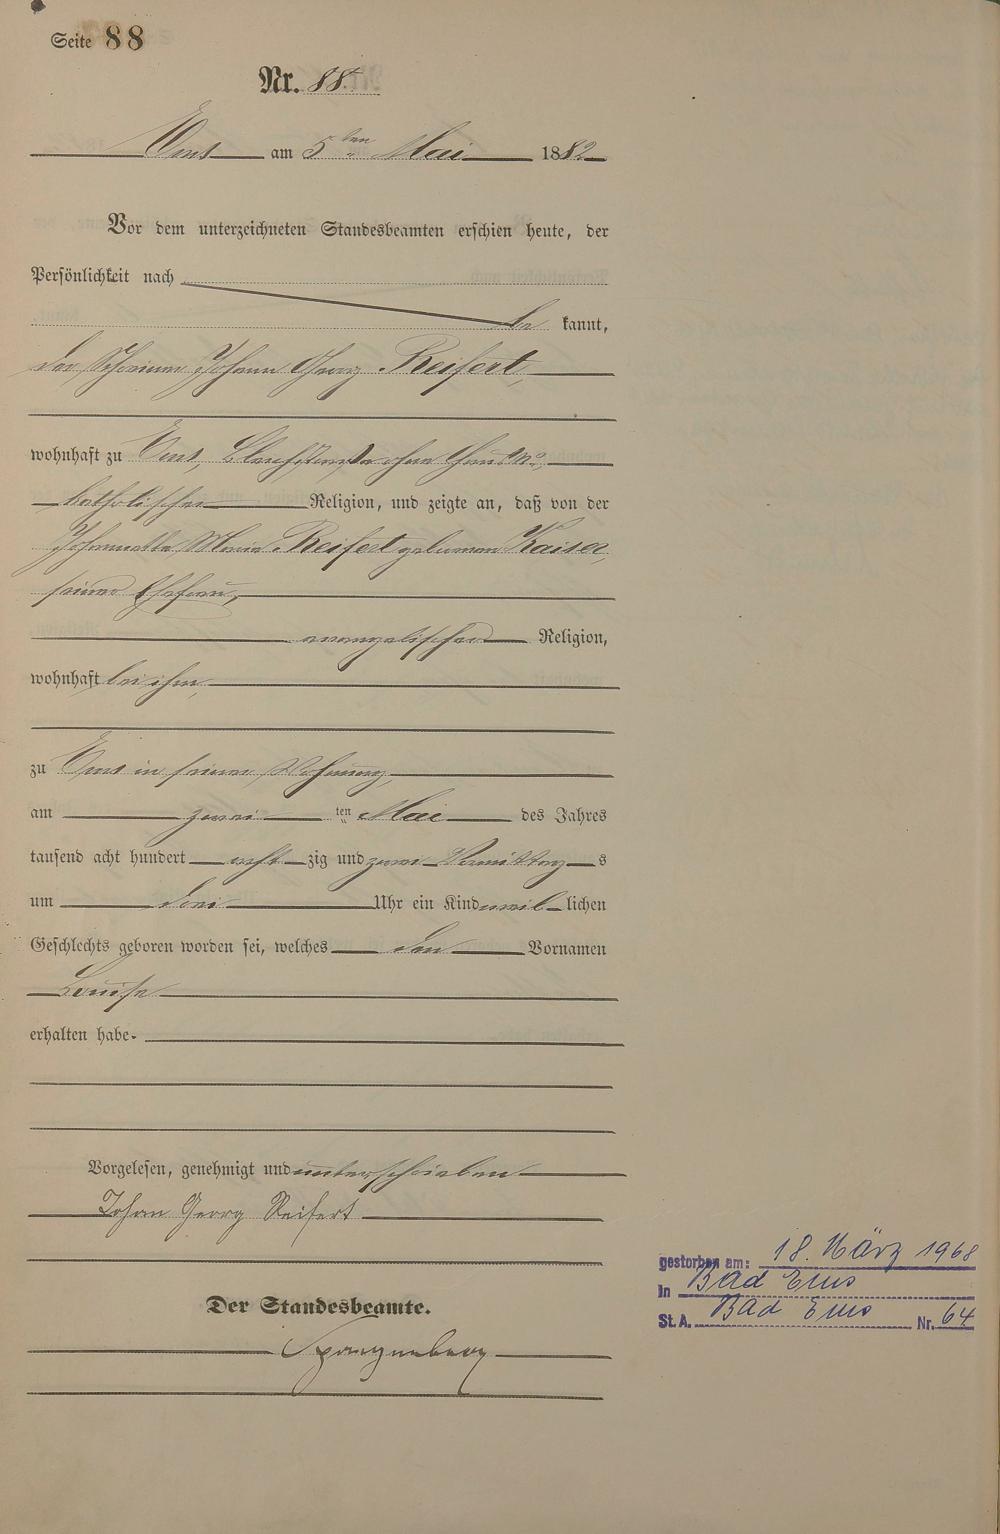 Seite 88
Nr. 88.
Ems am 5ten Mai 1882
Vor dem unterzeichneten Standesbeamten erschien heute, der
Persönlichkeit nach
be kannt,
der Schreiner Johann Georg Reifert,
wohnhaft zu Ems, Bleichstraße ohne Haus No,
katholischer Religion, und zeigte an, daß von der
Johannette Maria Reifert geborenen Kaiser,
seiner Ehefrau,
evangelischer Religion,
wohnhaft bei ihm,
zu Ems in seiner Wohnung,
am zwei ten Mai des Jahres
tausend acht hundert acht zig und zwei Vormittag s
um drei Uhr ein Kind weib lichen
Geschlechts geboren worden sei, welches den Vornamen
Louise
erhalten habe.
Vorgelesen, genehmigt und unterschrieben
Johan Georg Reifert
gestorben am: 18. März 1968
in Bad Ems
St. A. Bad Ems Nr. 64
Der Standesbeamte.
Spangenberg